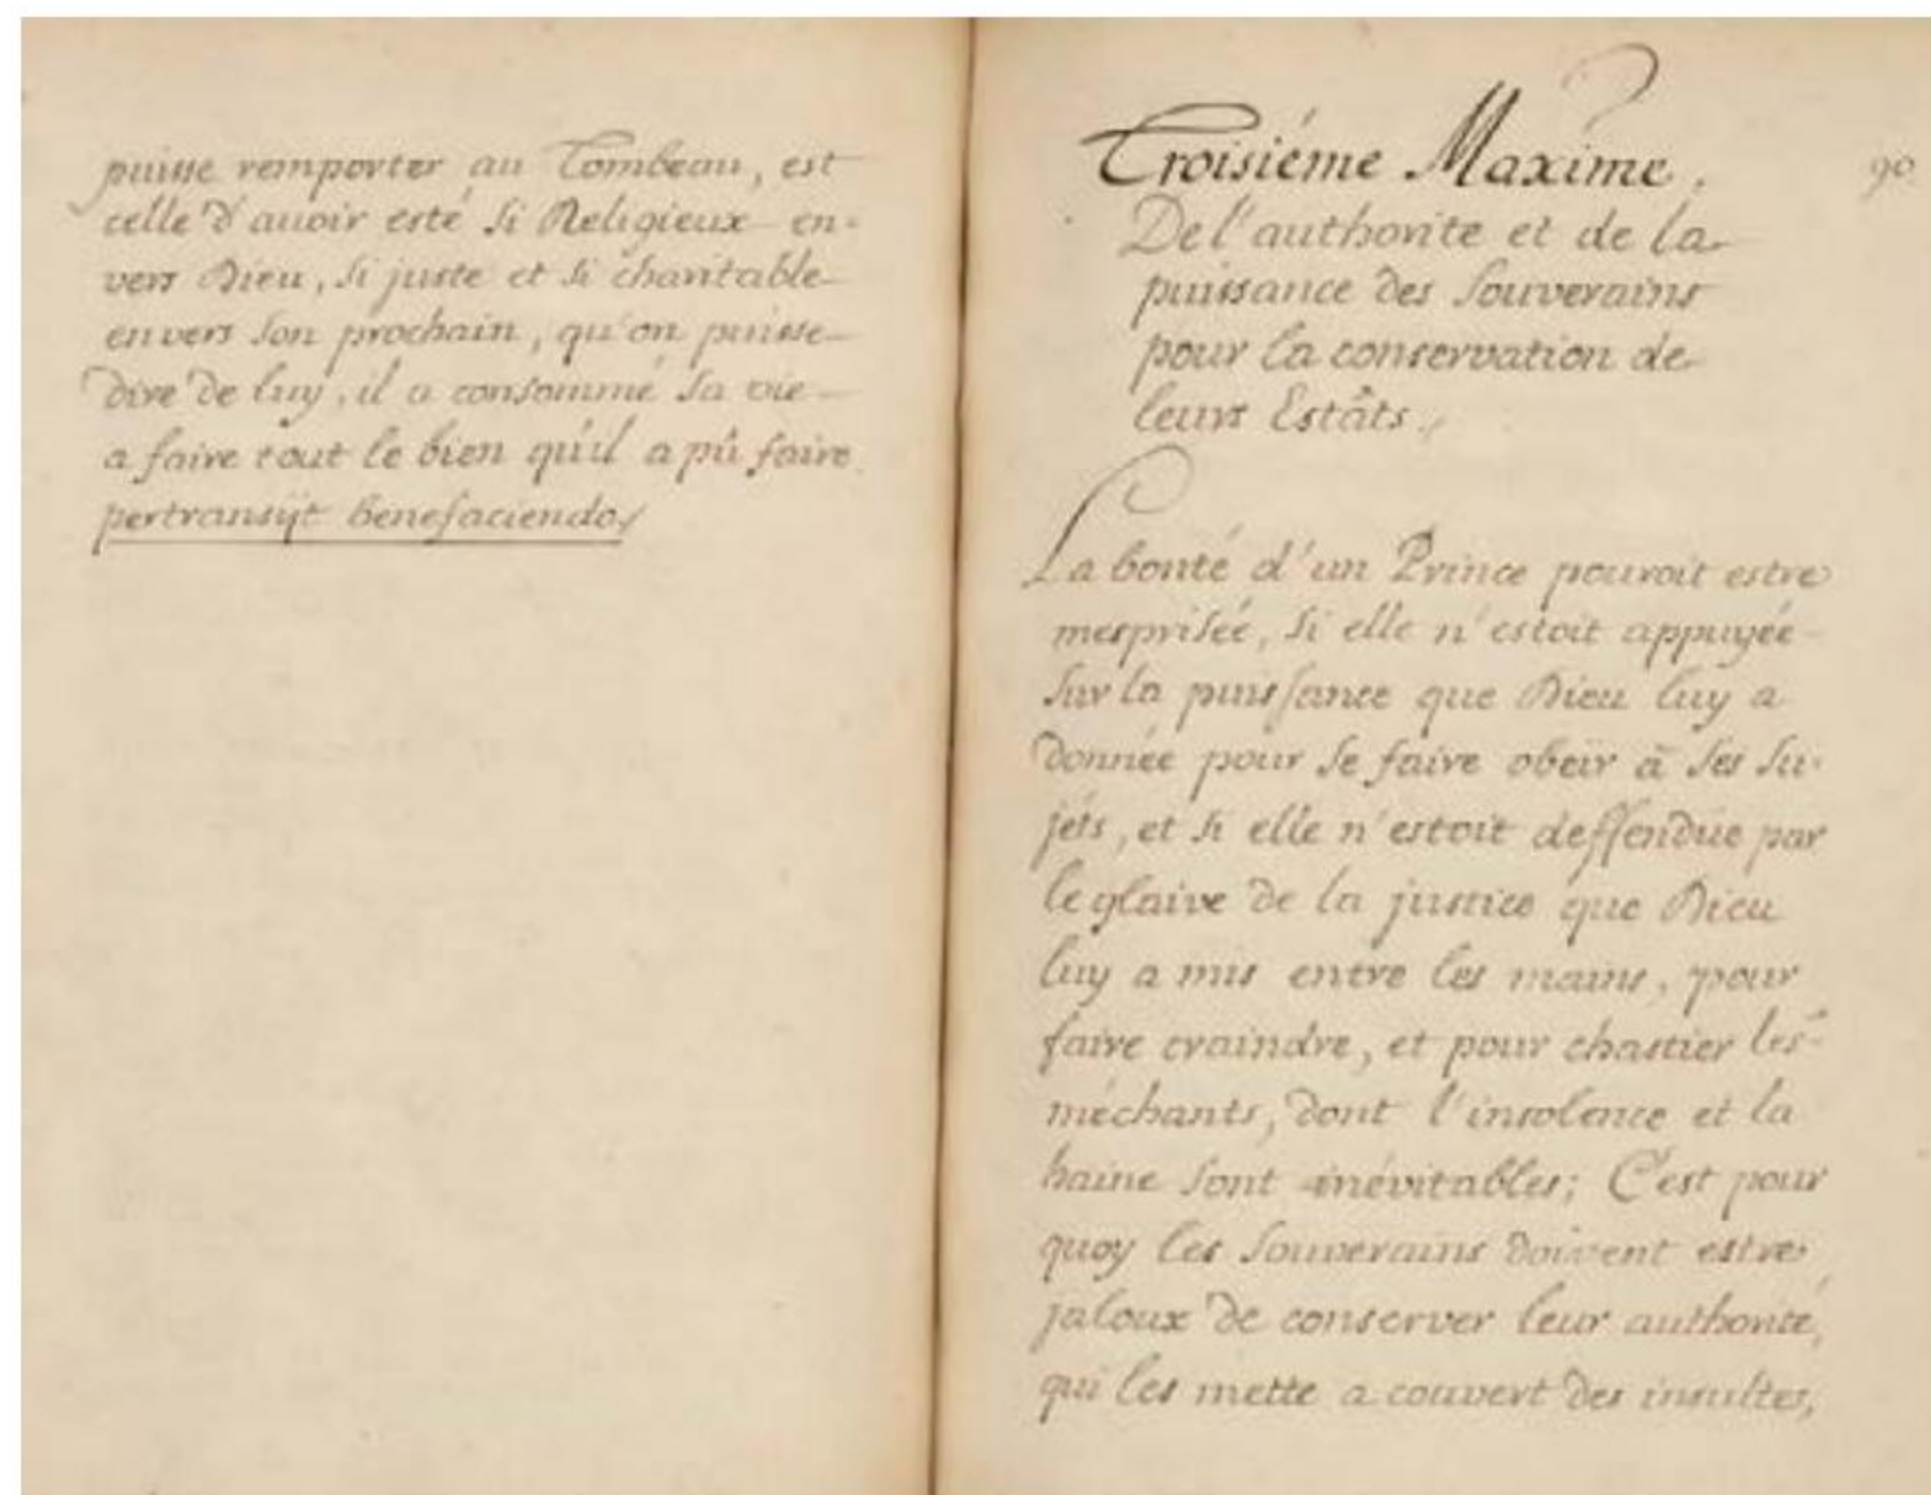 puisse remporter au Tombeau, est
celle d'avoir esté si Religieux en-
vers Dieu, si juste et si charitable
envers son prochain, qu'on puisse
dire de luy, il a consommé sa vie
a faire tout le bien qu'il a pû faire.
pertransijt benefaciendo
Troisiéme Maxime.
90
De l'authorite et de la
puissance des Souverains
pour la conservation de
leurs Estâts.
La bonté d'un Prince pouroit estre
mesprisée, si elle n'estoit appuyée
sur la puissance que Dieu luy a
donnée pour se faire obeïr à ses su-
jéts, et si elle n'estoit deffendüe par
le glaive de la justice que Dieu
luy a mis entre les mains, pour
faire craindre, et pour chastier les
méchants, dont l'insolence et la
haine sont inévitables; C'est pour
quoy les Souverains doivent estre
jaloux de conserver leur authorité,
qui les mette a couvert des insultes,